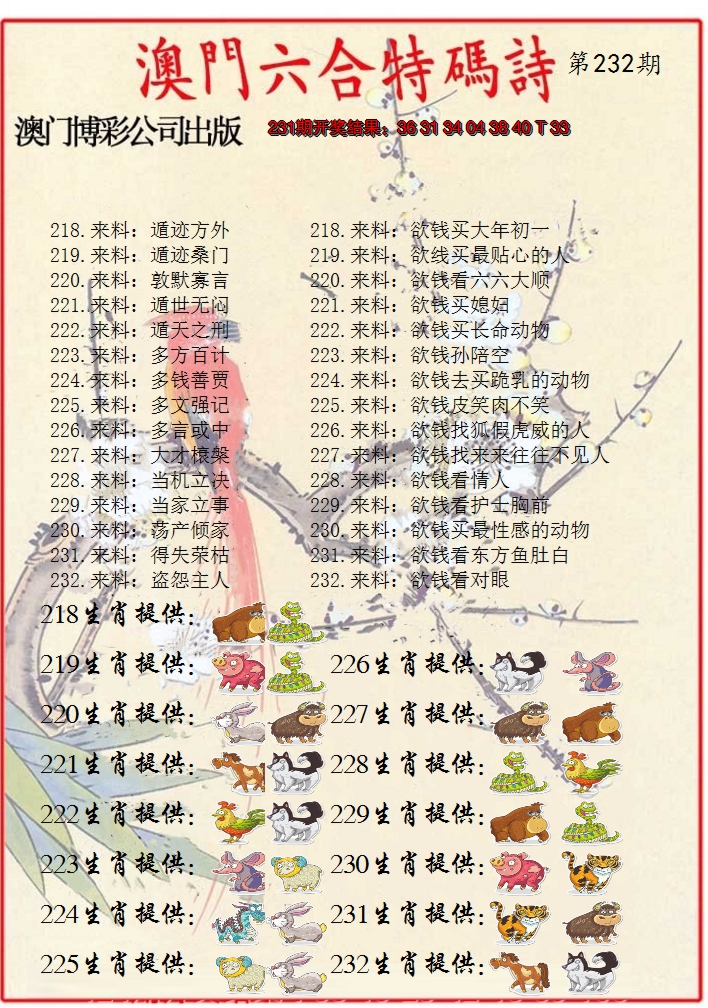 澳門六合特碼詩 第232期
澳门博彩公司出版 231期开奖结果：36 31 34 04 38 40 T 33
218.来料：遁迹方外 218.来料：欲钱买大年初一
219.来料：遁迹桑门 219.来料：欲线买最贴心的人
220.来料：敦默寡言 220.来料：欲钱看六六大顺
221.来料：遁世无闷 221.来料：欲钱买媳妇
222.来料：遁天之刑 222.来料：欲钱买长命动物
223.来料：多方百计 223.来料：欲钱孙陪空
224.来料：多钱善贾 224.来料：欲钱去买跪乳的动物
225.来料：多文强记 225.来料：欲钱皮笑肉不笑
226.来料：多言或中 226.来料：欲钱找狐假虎威的人
227.来料：大才榱槃 227.来料：欲钱找来来往往不见人
228.来料：当机立决 228.来料：欲钱看情人
229.来料：当家立事 229.来料：欲钱看护士胸前
230.来料：荡产倾家 230.来料：欲钱买最性感的动物
231.来料：得失荣枯 231.来料：欲钱看东方鱼肚白
232.来料：盗怨主人 232.来料：欲钱看对眼
218生肖提供：
219生肖提供： 226生肖提供：
220生肖提供： 227生肖提供：
221生肖提供： 228生肖提供：
222生肖提供： 229生肖提供：
223生肖提供： 230生肖提供：
224生肖提供： 231生肖提供：
225生肖提供： 232生肖提供：